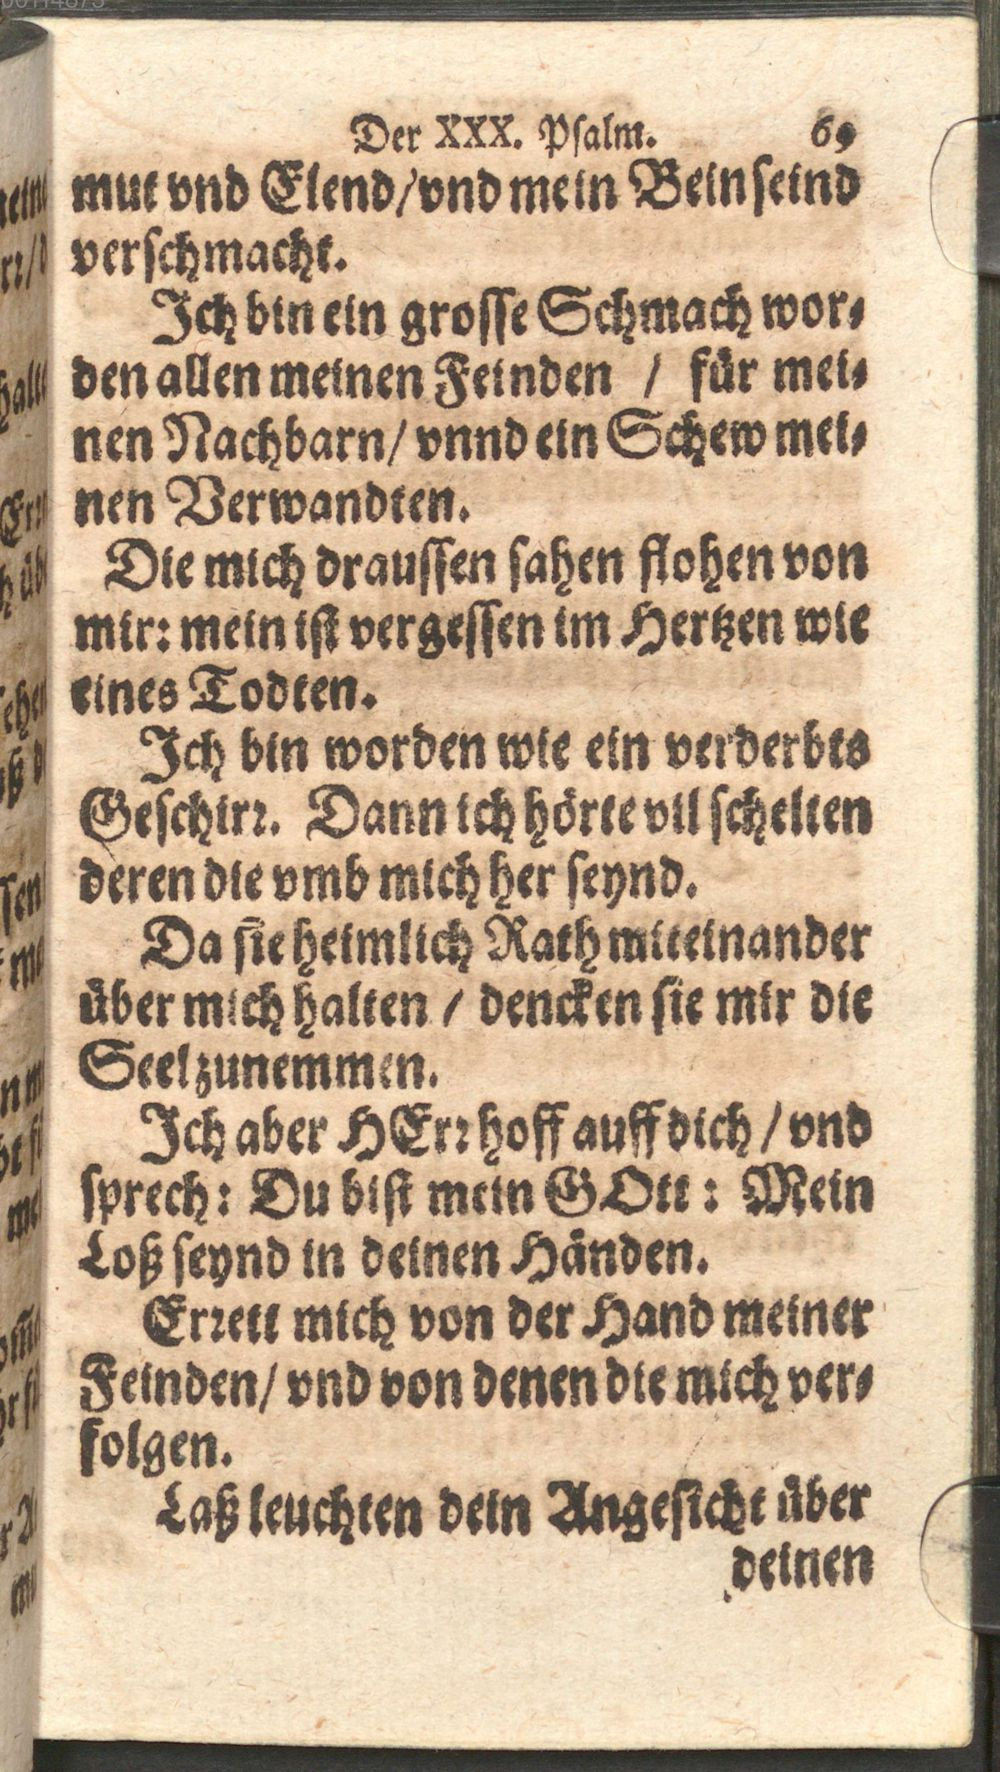 Der XXX. Psalm. 69
mut vnd Elend/vnd mein Bein seind
verschmacht.
Ich bin ein grosse Schmach wor⸗
den allen meinen Feinden / für mei⸗
nen Nachbarn/ vnnd ein Schew mei⸗
nen Verwandten.
Die mich draussen sahen flohen von
mir: mein ist vergessen im Hertzen wie
eines Todten.
Ich bin worden wie ein verderbts
Geschirr. Dann ich hörte vil schelten
deren die vmb mich her seynd.
Da sie heimlich Rath miteinander
über mich halten / dencken sie mir die
Seel zunemmen.
Ich aber HErr hoff auff dich / vnd
sprech: Du bist mein GOtt: Mein
Loß seynd in deinen Händen.
Errett mich von der Hand meiner
Feinden/ vnd von denen die mich ver⸗
folgen.
Laß leuchten dein Angesicht über
deinen